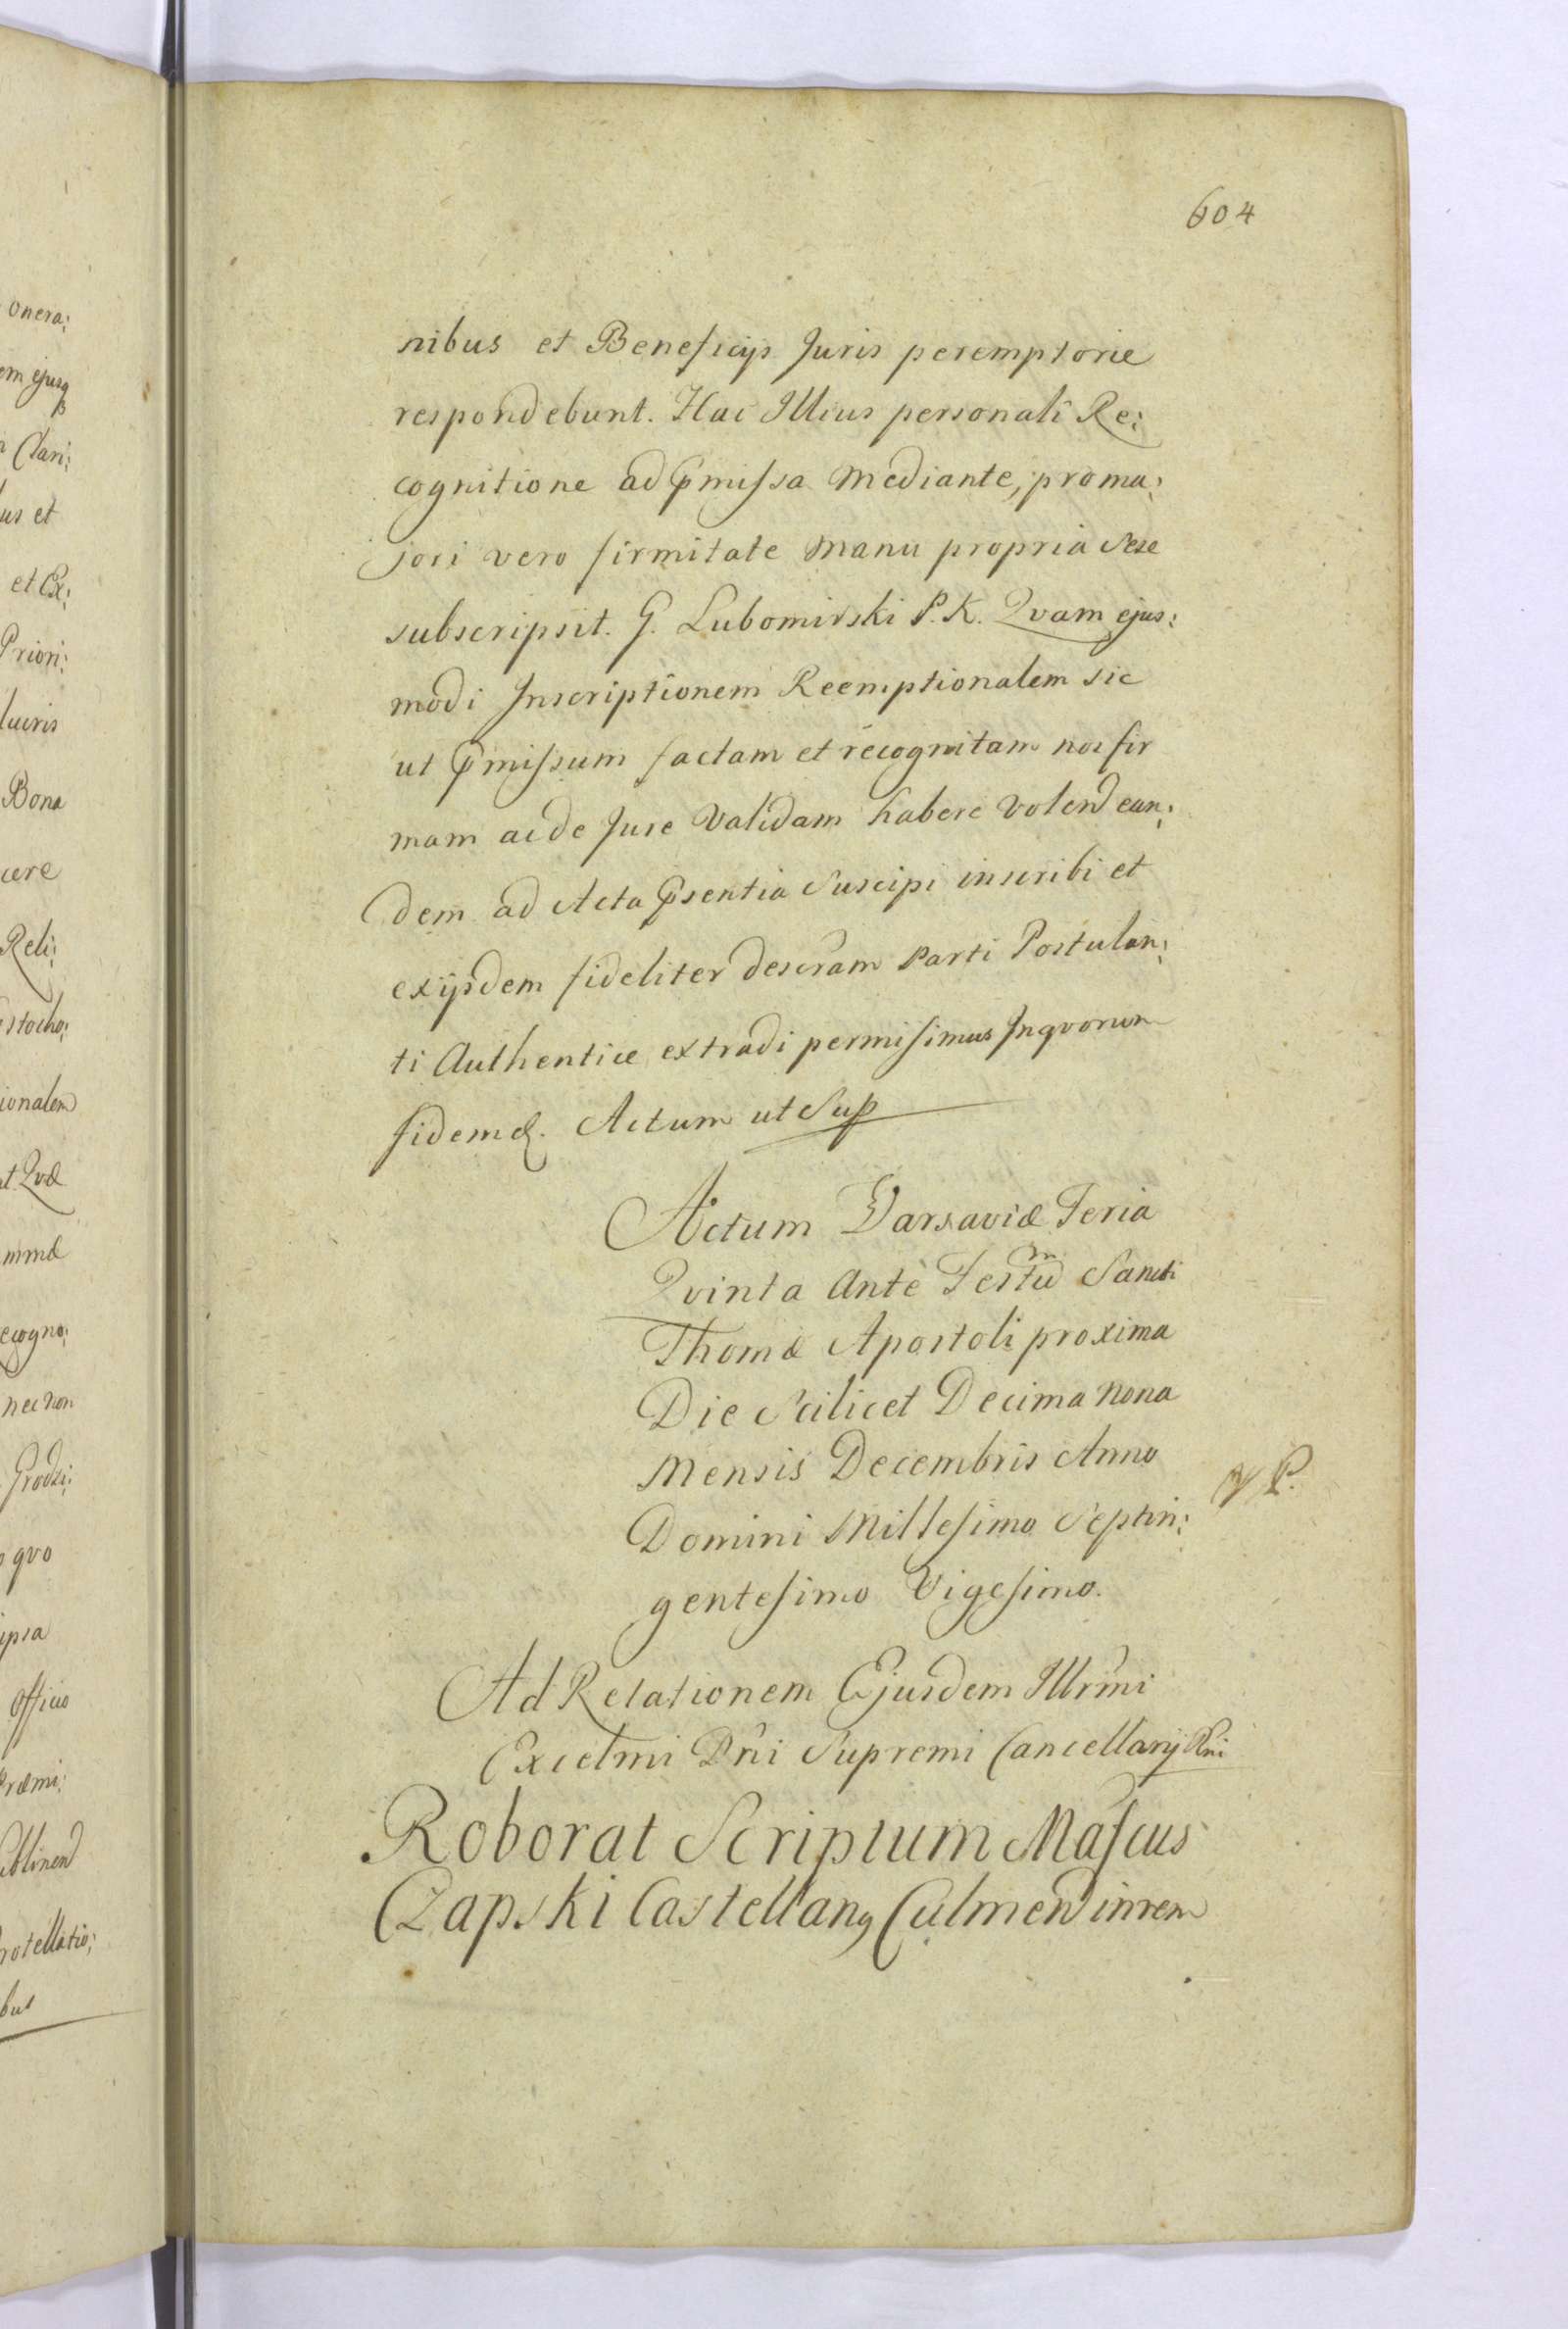 604
nibus et Beneficijs Juris peremptorie
respondebunt. Hac Illius personali Re:
cognitione ad pmissa mediante, pro ma:
jori vero firmitate manu propria sese
subscripsit. G. Lubomirski P. K. Qvam ejus:
modi Inscriptionem Reemptionalem sic
ut pmissum factam et recognitam nos fir
mam ac de Jure Validam habere volend ean:
dem ad Acta psentia Suscipi inscribi et
ex ijsdem fideliter descram parti Postulan:
ti Authentice extradi permisimus In qvorum
fidem &. Actum ut Sup
Actum Varsaviæ Feria
Qvinta Ante Festum Sancti
Thomæ Apostoli proxima
Die Scilicet Decima nona
Mensis Decembris Anno
Domini Millesimo Septin:
gentesimo Vigesimo.
Ad Relationem Ejusdem Illrmi
Excelmi Dni Supremi Cancellarij Rni
Roborat Scriptum Mafcus
Czapski Castellanq Culmend in rem
onera:
em ejusq
Clari:
us et
et Ex:
Priori:
lucris
Bona
cere
Reli:
stocho:
ionalem
t Qvæ
mmæ
ecogno:
nec non
Grodzi:
qvo
ipsa
Officio
Præmi:
rotellatio:
bus